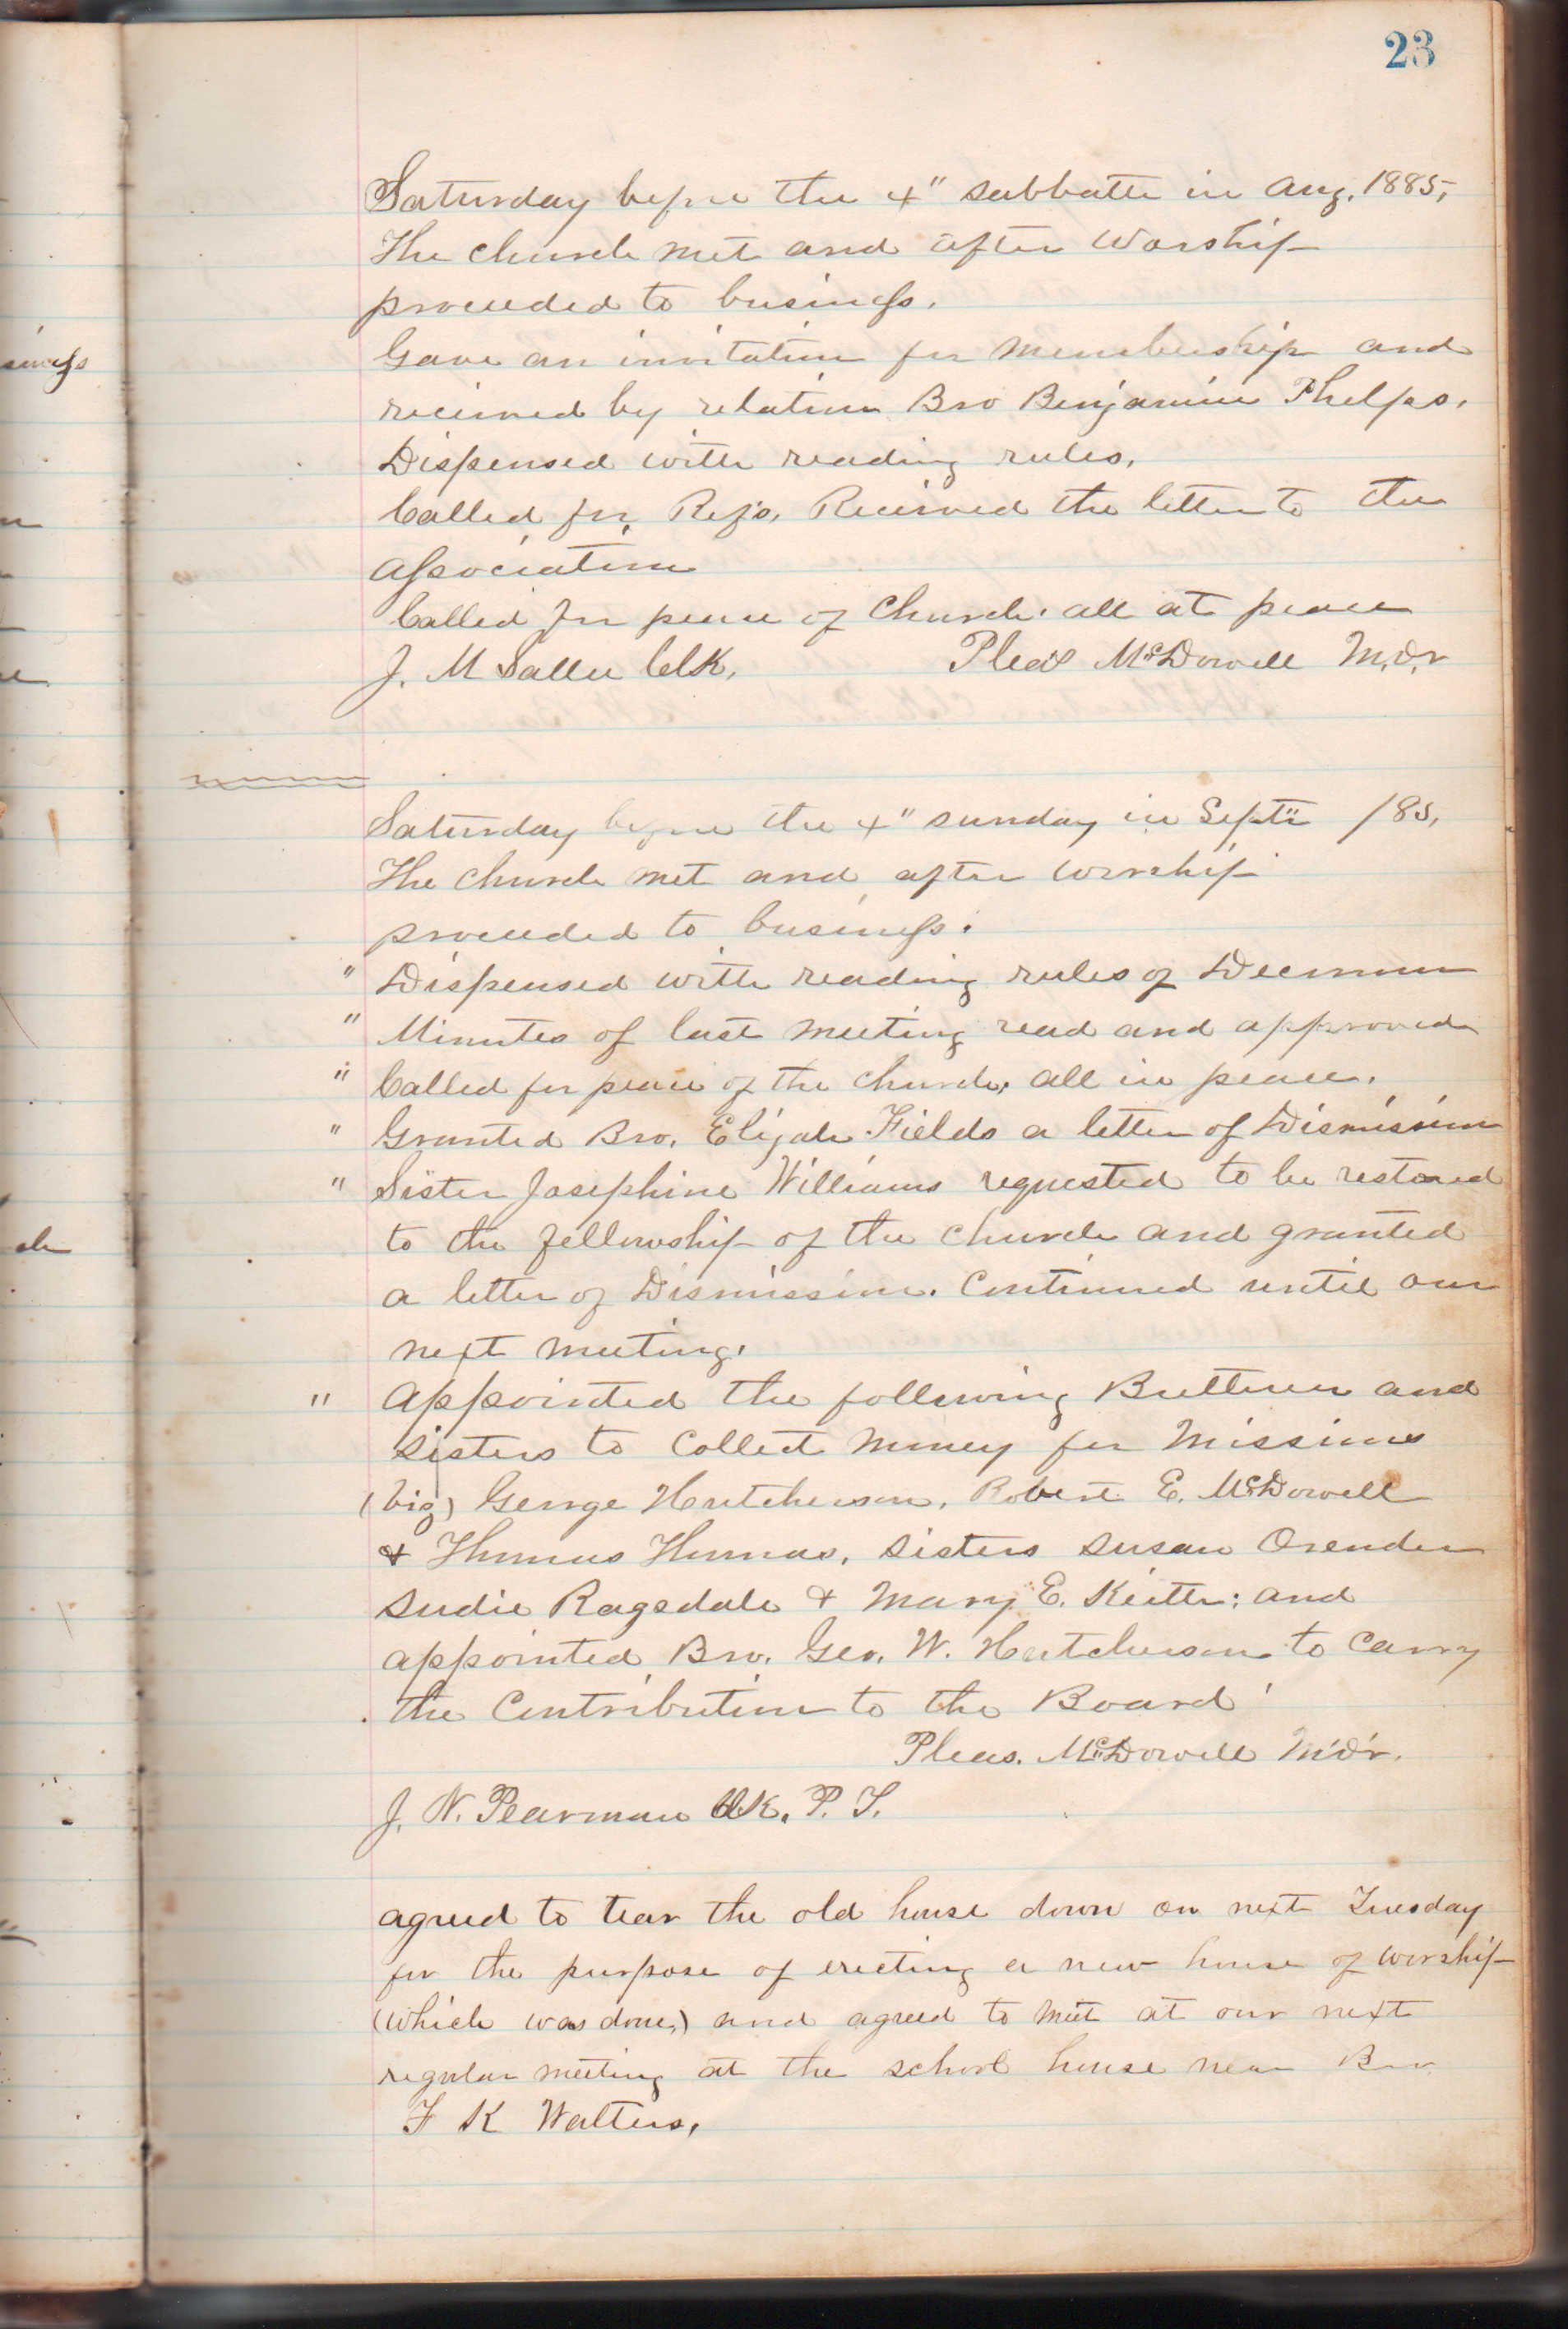 23
Saturday before the 4" sabbath in Aug. 1885,
The church met and after Worship
proceeded to business.
Gave an invitation for Membership and
received by relation Bro Benjamin Phelps.
Dispensed with reading rules.
Called for Refs. Received the letter to the
Association
Called for peace of Church. all at peace
J. M Sallee Clk. Pleas McDowell M.d.r
Saturday before the 4" sunday in Sept /85,
The church met and after worship
proceeded to business.
" Dispensed with reading rules of Decorum
" Minutes of last meeting read and approved
" Called for peace of the church, all in peace.
" Granted Bro. Elijah Fields a letter of Dismission
" Sister Josephine Williams requested to be restored
to the fellowship of the church and granted
a letter of Dismission. Continued until our
next meeting.
" Appointed the following Brethren and
sisters to Collect Money for Missions
(viz) George Hutcherson, Robert E. McDowell
& Thomas Thomas, sisters susan Orender
sudie Ragsdale & Mary E. Keith; and
appointed Bro. Geo. W. Hutcherson to Carry
the Contribution to the Board
Pleas. McDowell Mdr.
J. W. Pearman Clk. P. T.
agreed to tear the old house down on next Tuesday
for the purpose of erecting a new house of worship
(which was done,) and agreed to meet at our next
regular meeting at the school house near Bro
F K Walters.
sinefs
ch